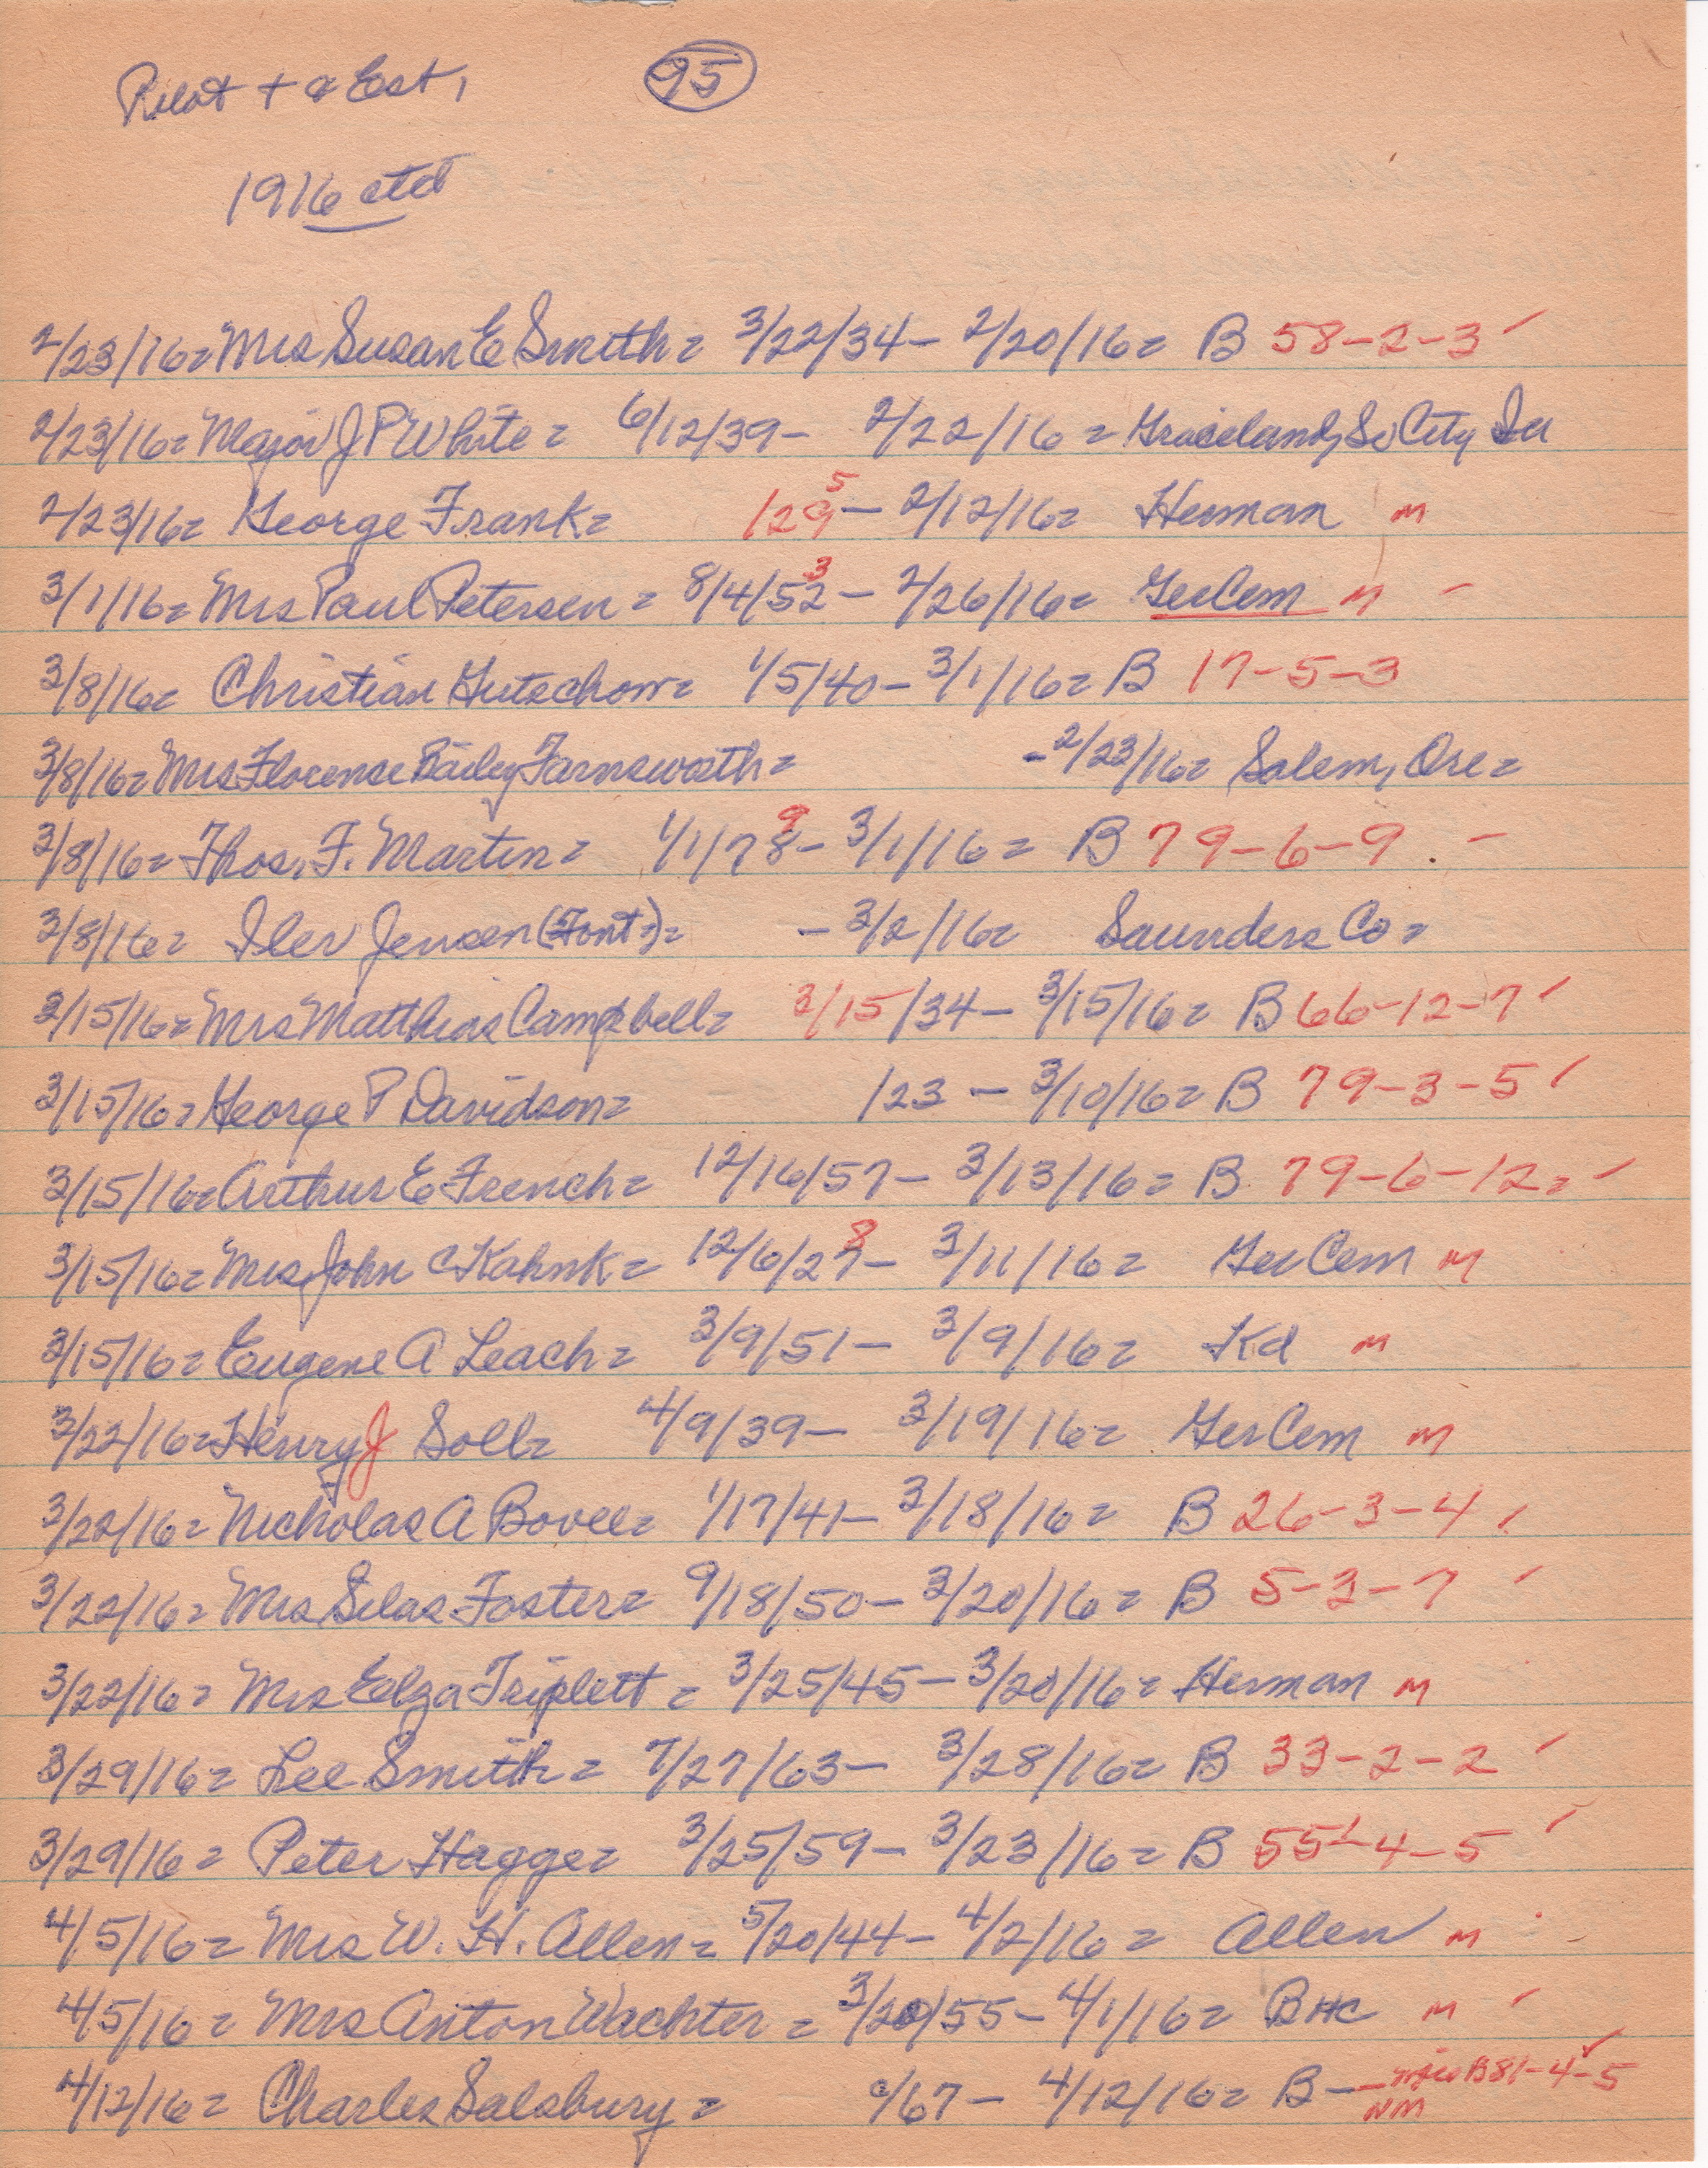 Pilot + & Est, 95
1916 ctd
2/23/16= Mrs Susan E Smith= 3/22/34- 2/20/16= B 58-2-3
2/23/16= Major J P White= 6/12/39- 2/22/16= Graceland, So City Ia
2/23/16= George Frank= 129 5 - 2/12/16= Herman m
3/1/16= Mrs Paul Petersen= 8/4/52 3 - 2/26/16= GerCem m -
3/8/16= Christian Gutschow= 1/5/40- 3/1/16= B 17-5-3
3/8/16= Mrs Florence Bailey Farnsworth= -2/23/16= Salem, Ore=
3/8/16= Thos. F. Martin= 1/1/78 9 - 3/1/16= B 79-6-9 -
3/8/16= Iler Jensen (Font=)= - 3/2/16= Saunders Co=
3/15/16= Mrs Matthias Campbell= 3/15/34- 3/15/16= B 66-12-7
3/15/16= George P Davidson= 123 - 3/10/16= B 79-3-5
3/15/16= Arthur E French= 12/16/57- 3/13/16= B 79-6-12=
3/15/16= Mrs John C Kahnk= 12/6/27 8 - 3/11/16= Ger Cem m
3/15/16= Eugene A Leach= 3/9/51- 3/9/16= Kd m
3/22/16= Henry J Soll= 4/9/39- 3/19/16= Ger Cem m
3/22/16= Nicholas A Bovee= 1/17/41- 3/18/16= B 26-3-4
3/22/16= Mrs Silas Foster= 9/18/50- 3/20/16= B 5-3-7
3/22/16= Mrs Elza Triplett= 3/25/45- 3/20/16= Herman m
3/29/16= Lee Smith= 7/27/63- 3/28/16= B 33-2-2
3/29/16= Peter Hagge= 3/25/59- 3/23/16= B 55-4-5
4/5/16= Mrs W. H. Allen= 5/20/44- 4/2/16= Allen m
4/5/16= Mrs Anton Wachter= 3/20/55- 4/1/16= BHC m
4/12/16= Charles Salsbury= /67- 4/12/16= B- B81-4-5
NM